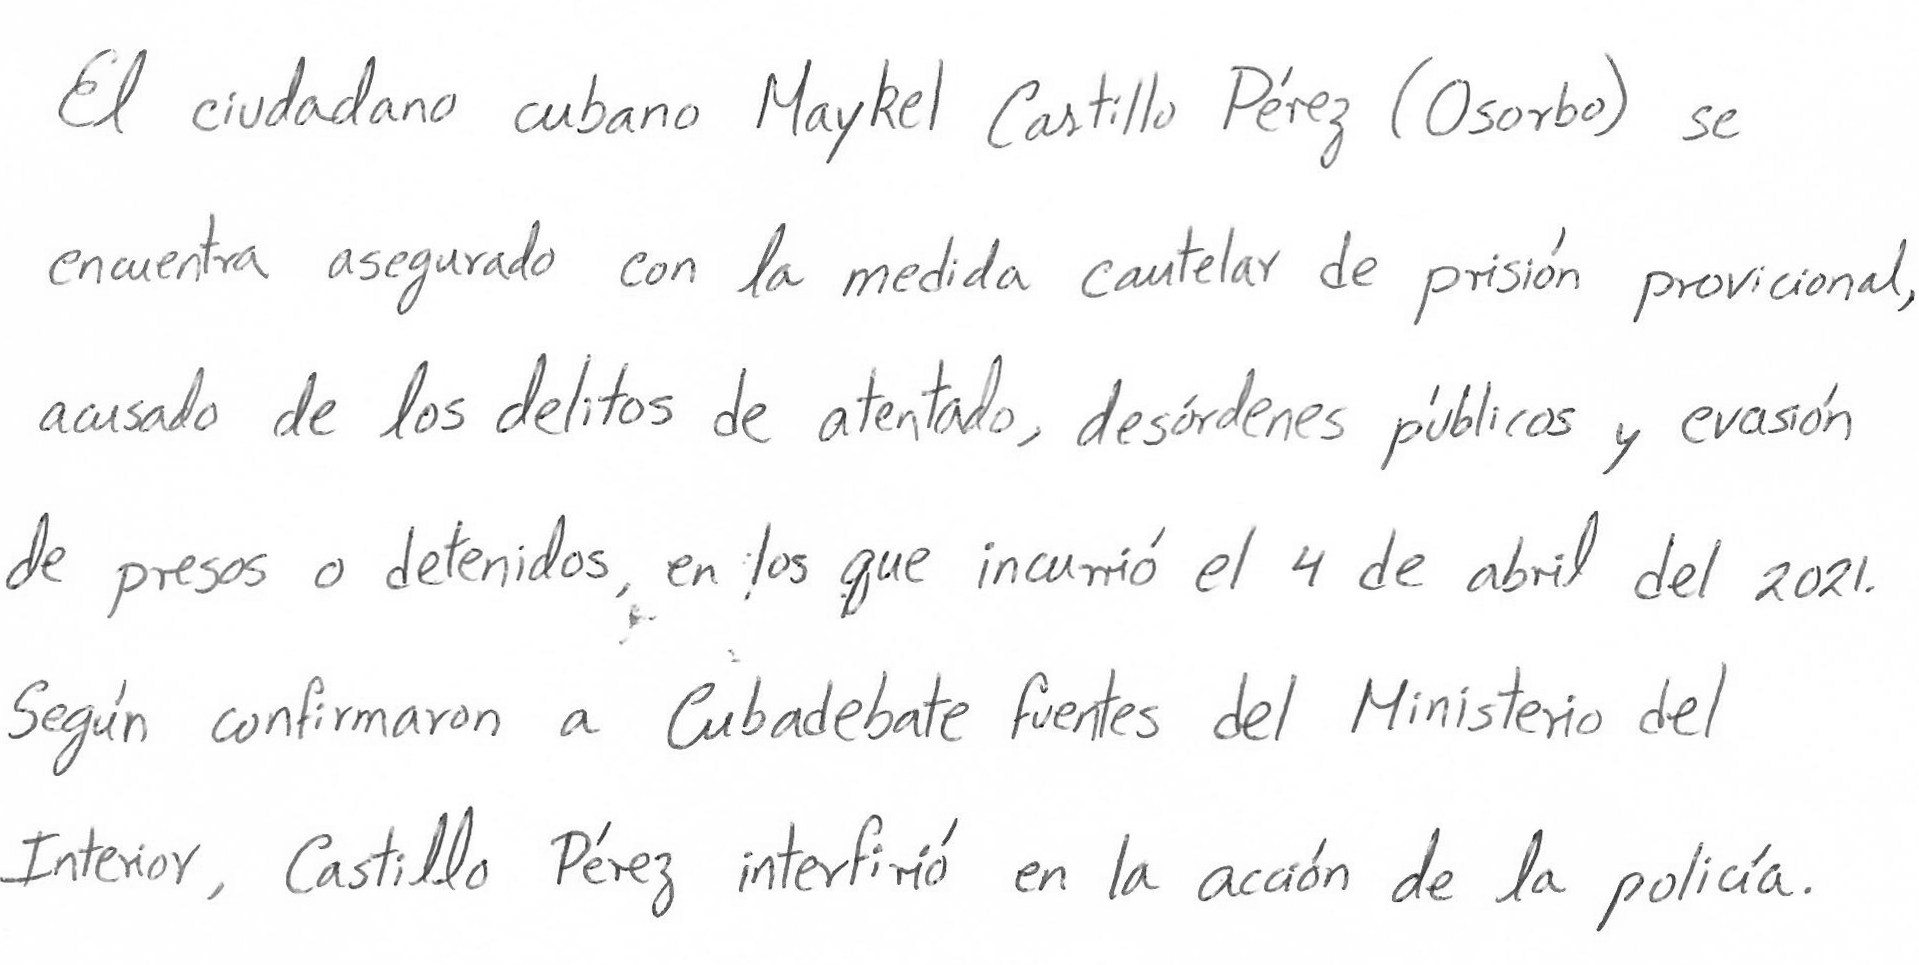 El ciudadano cubano Maykel Castillo Pérez (Osorbo) se
encuentra asegurado con la medida cautelar de prisión provicional,
acusado de los delitos de atentado, desórdenes públicos y evasión
de presos o detenidos, en los que incurrió el 4 de abril del 2021.
Según confirmaron a Cubadebate fuentes del Ministerio del
Interior, Castillo Pérez interfirió en la acción de la policía.